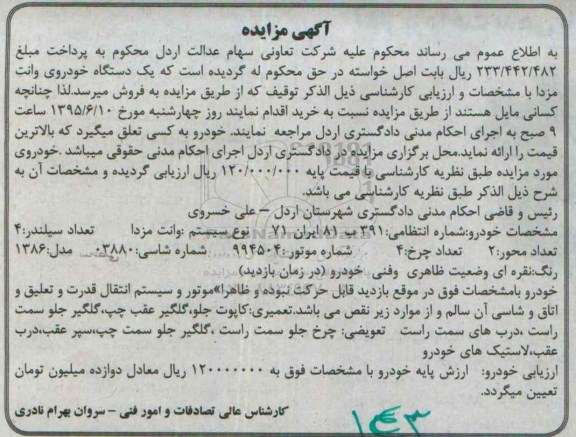 آگهی مزایده
به اطلاع عموم می رساند محکوم علیه شرکت تعاونی سهام عدالت اردل محکوم به پرداخت مبلغ
۲۳۳/۴۴۲/۴۸۲ ریال بابت اصل خواسته در حق محکوم له گردیده است که یک دستگاه خودروی وانت
مزدا با مشخصات و ارزیابی کارشناسی ذیل الذکر توقیف که از طریق مزایده به فروش میرسد.لذا چنانچه
کسانی مایل هستند از طریق مزایده نسبت به خرید اقدام نمایند روز چهارشنبه مورخ ۱۳۹۵/۶/۱۰ ساعت
۹ صبح به اجرای احکام مدنی دادگستری اردل مراجعه نمایند. خودرو به کسی تعلق میگیرد که بالاترین
قیمت را ارائه نماید.محل برگزاری مزایده در دادگستری اردل اجرای احکام مدنی حقوقی میباشد .خودروی
مورد مزایده طبق نظریه کارشناسی با قیمت پایه ۱۲۰/۰۰۰/۰۰۰ ریال ارزیابی گردیده و مشخصات آن به
شرح ذیل الذکر طبق نظریه کارشناسی می باشد.
رئیس و قاضی احکام مدنی دادگستری شهرستان اردل – علی خسروی
مشخصات خودرو:شماره انتظامی:۳۹۱ ب ۸۱ ایران ۷۱ نوع سیستم :وانت مزدا تعداد سیلندر:۴
تعداد محور:۲ تعداد چرخ:۴ شماره موتور:۹۹۴۵۰۴ شماره شاسی:۰۳۸۸۰ مدل:۱۳۸۶
رنگ:نقره ای وضعیت ظاهری وفنی خودرو (در زمان بازدید)
خودرو بامشخصات فوق در موقع بازدید قابل حرکت نبوده و ظاهرا»موتور و سیستم انتقال قدرت و تعلیق و
اتاق و شاسی آن سالم و از موارد زیر نقص می باشد.تعمیری:کاپوت جلو،گلگیر عقب چپ،گلگیر جلو سمت
راست ،درب های سمت راست تعویضی: چرخ جلو سمت راست ،گلگیر جلو سمت چپ،سپر عقب،درب
عقب،لاستیک های خودرو
ارزیابی خودرو: ارزش پایه خودرو با مشخصات فوق به ۱۲۰۰۰۰۰۰۰ ریال معادل دوازده میلیون تومان
تعیین میگردد.
کارشناس عالی تصادفات و امور فنی – سروان بهرام نادری
۱۴۳